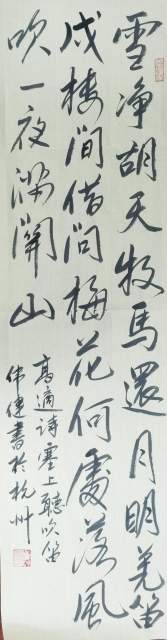 雪净胡天牧馬還月明羌笛
戍樓間借问梅花何處落風
吹一夜满關山
高適詩塞上聽吹笛
伟健書於杭州